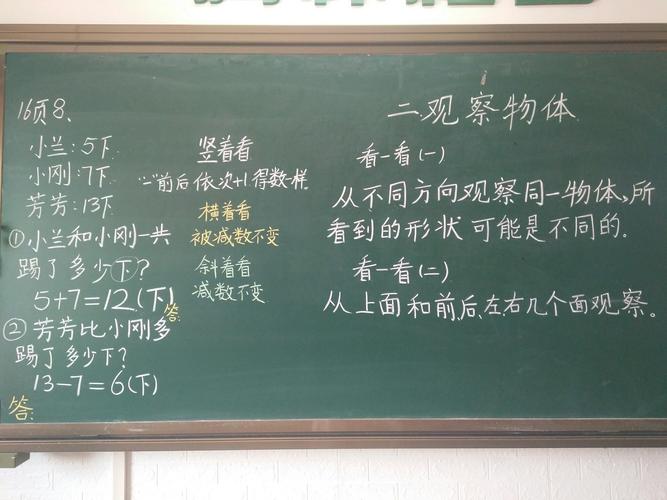 16页8、
小兰:5下
小刚:7下
芳芳:13下
①小兰和小刚一共
踢了多少下?
5+7=12(下)
答:
②芳芳比小刚多
踢了多少下?
13-7=6(下)
答:
竖着看
"-"前后依次+1.得数一样.
横着看
被减数不变
斜着看
减数不变
二观察物体
看一看(一)
从不同方向观察同一物体,所
看到的形状可能是不同的.
看一看(二)
从上面和前后、左右几个面观察。